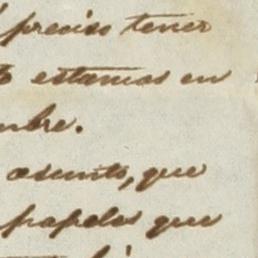 preciso tener
estamos en
mbre.
asunto, que
papeles que